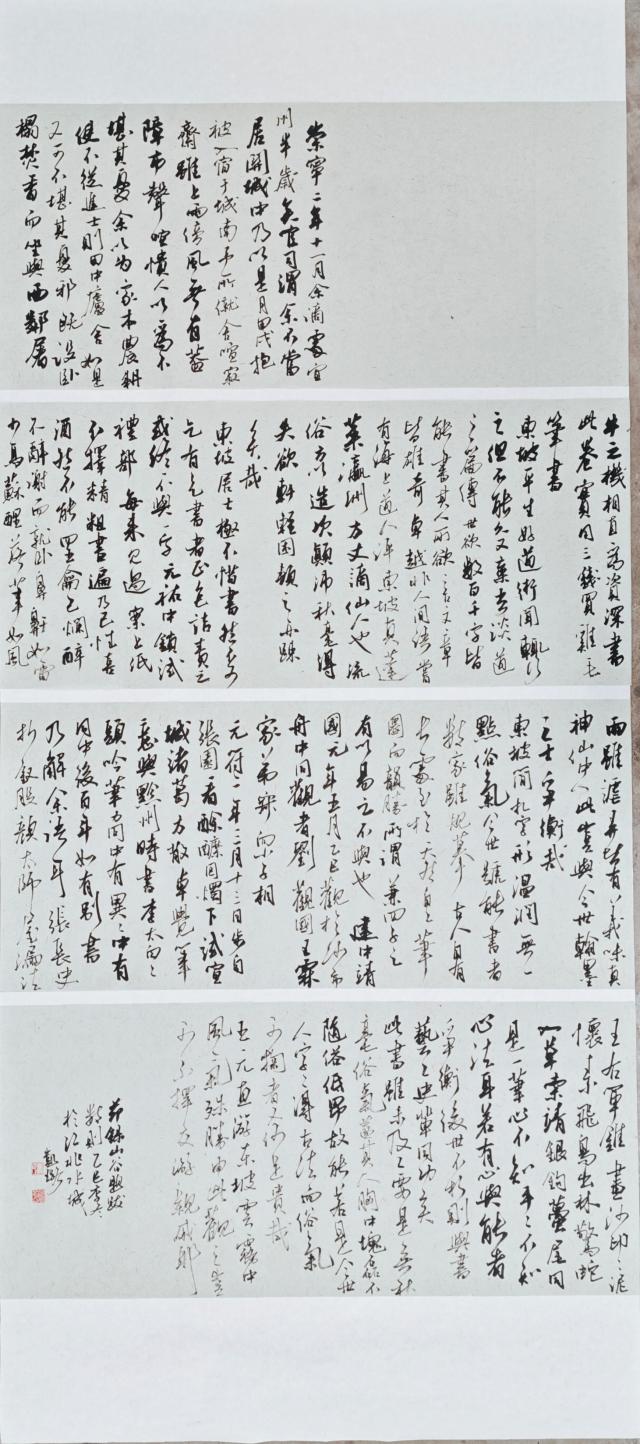 崇寧二年十一月余謫處宜
州半歲矣官司謂余不當
居關城中乃以是月甲戌抱
被入宿于城南予所僦舍喧寂
齋雖上雨傍風無有蓋
障市聲喧憒人以為不
堪其憂余以為家本農耕
使不從進士則田中廬舍如是
又可不堪其憂邪既設臥
榻焚香而坐與西鄰屠
牛之機相直為資深書
此卷實用三錢買雞毛
筆書
東坡平生好道術聞輒行
之但不能久又棄去談道
之篇傳世欲數百千字皆
能書其人所欲言文章
皆雄奇卓越非人間語嘗
有海上道人評東坡真蓬
萊瀛洲方丈謫仙人也流
俗方以造次顛沛秋毫得
失欲軒輊困頓之亦疎
矣哉
東坡居士極不惜書然不可
乞有乞書者正色詰責之
或終不與一字元祐中鎖試
禮部每來見過案上紙
不擇精粗書遍乃已性喜
酒然不能四五龠已爛醉
不辭謝而就臥鼻鼾如雷
少焉蘇醒落筆如風
雨雖謔弄皆有義味真
神仙中人此豈與今世翰墨
之士爭衡哉
東坡簡札字形溫潤無一
點俗氣今世號能書者
數家雖規摹古人自有
長處至於天然自工筆
圓而韻勝所謂兼四子之
有以易之不與也 建中靖
國元年五月乙巳觀於沙市
舟中同觀者劉觀國王霖
家弟叔向小子相
元符二年三月十三日步自
張園看酴醿回燭下試宣
城諸葛方散卓覺筆
意與黔州時書李太白白
頭吟筆力同中有異異中有
同後百年如有別書
乃解余語耳 張長史
折釵股顏太師屋漏法
王右軍錐畫沙印印泥
懷素飛鳥出林驚蛇
入草索靖銀鉤蠆尾同
是一筆心不知手手不知
心法耳若有心與能者
爭衡後世不朽則與書
藝工史輩同功矣
此書雖未及工要是無秋
毫俗氣蓋其人胸中塊磊不
隨俗低昂故能若是今世
人字字得古法而俗氣
可掬者又何足貴哉
王元直游東坡雲霧中
風氣殊勝由此觀之豈
可不擇交游親戚耶
節錄山谷題跋
數則乙巳季冬
於江北水城